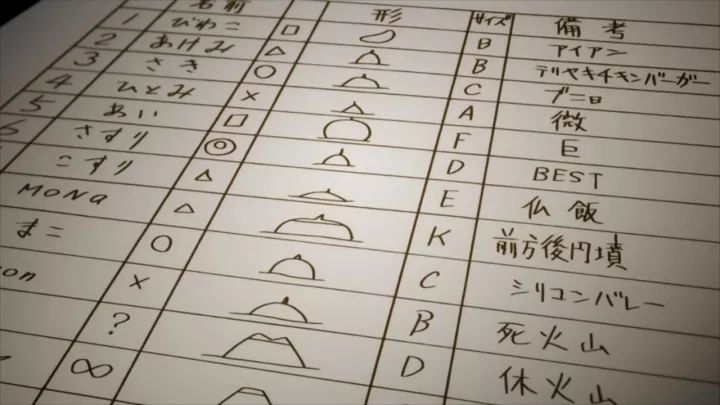 名前 形 サイズ 備考
1 びわこ □ B アイアン
2 あけみ △ B テリヤキチキンバーガー
3 さき ○ C
4 ひとみ × A 微
5 あい □ F 巨
6 さすり ◎ D BEST
こすり △ E 仏飯
MONA △ K 前方後円墳
まこ ○ C シリコンバレー
on × B 死火山
? D 休火山
∞